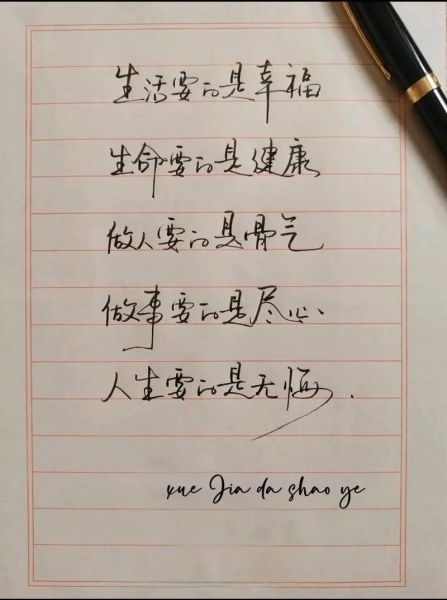 生活要的是幸福
生命要的是健康
做人要的是骨气
做事要的是尽心
人生要的是无悔.
xue Jia da shao ye